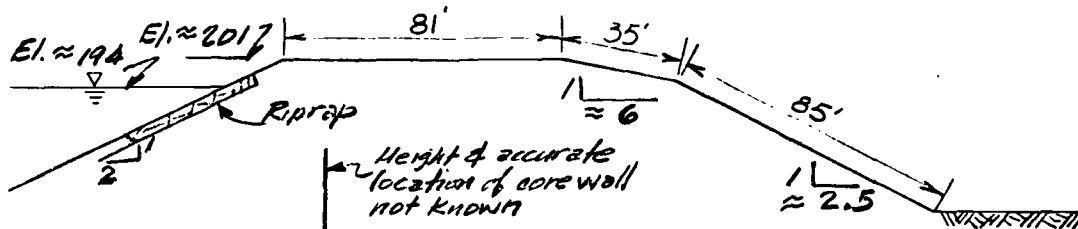 81'
35'
El. ≈ 201?
El. ≈ 194
85'
1
≈ 6
Riprap
1
2
Height & accurate
location of core wall
not known
1
≈ 2.5